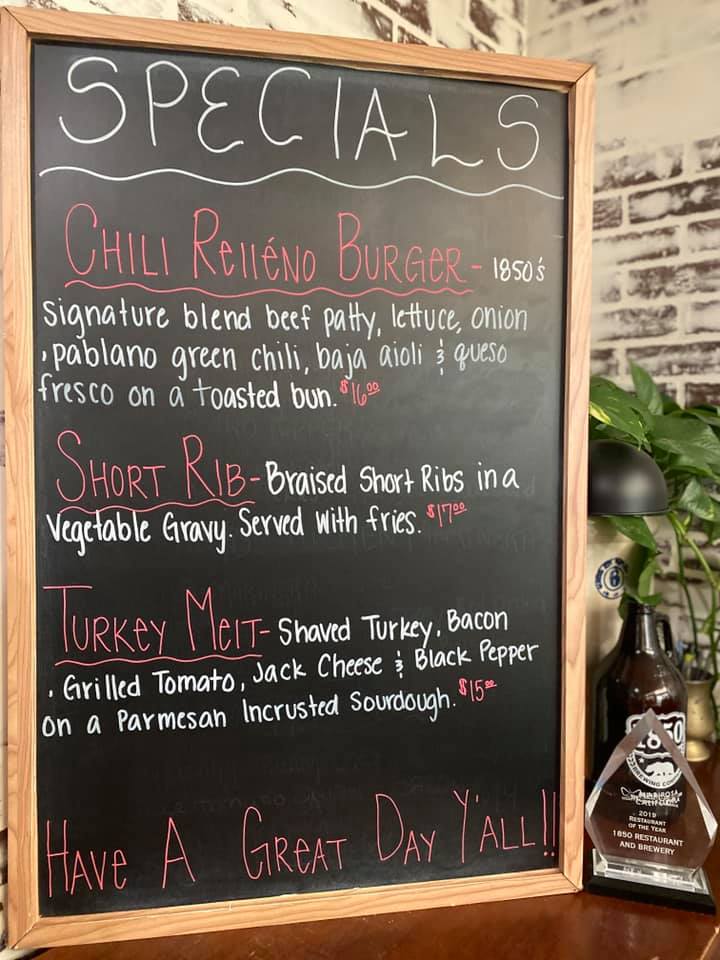 SPECIALS
CHILI RELLÉNO BURGER- 1850's
signature blend beef patty, lettuce, onion
,pablano green chili, baja aioli & queso
fresco on a toasted bun. $16.00
SHORT RIB- Braised Short Ribs in a
Vegetable Gravy. Served with fries. $17.00
TURKEY MELT- Shaved Turkey, Bacon
, Grilled Tomato, Jack Cheese & Black Pepper
on a Parmesan Incrusted Sourdough. $15.00
HAVE A GREAT DAY Y'ALL!!
1850
BREWING
MARIPOSA
CALIFORNIA
2019
RESTAURANT
OF THE YEAR
1850 RESTAURANT
AND BREWERY